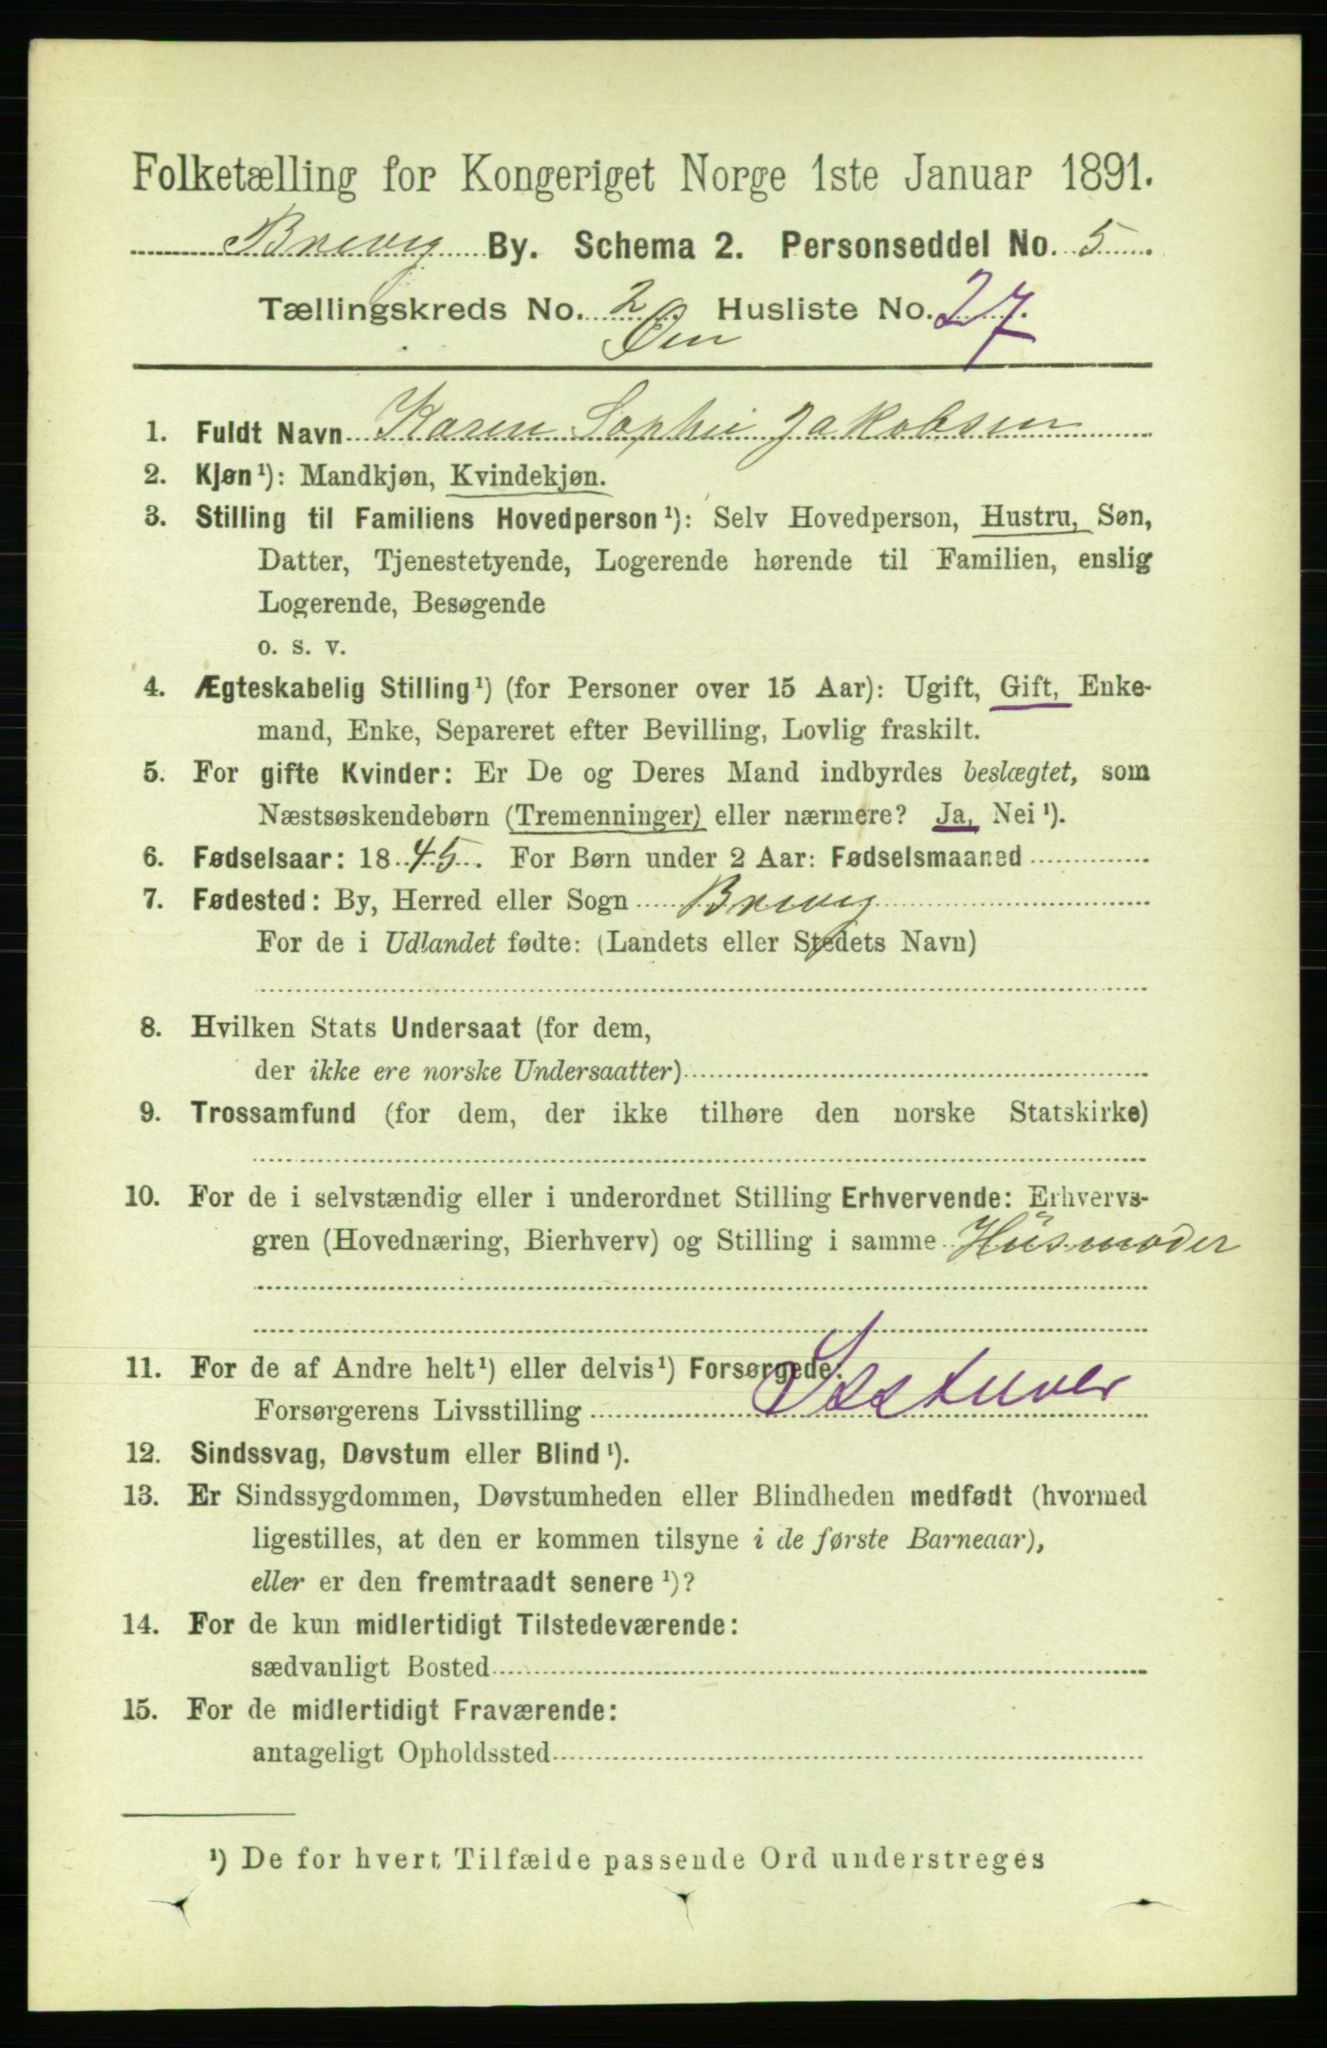 Folketælling for Kongeriget Norge 1ste Januar 1891.
Brevig By. Schema 2. Personseddel No. 5
Tællingskreds No. 2 Husliste No. 27.
Øen
1. Fuldt Navn Karen Sophie Jakobsen
2. Kjøn¹): Mandkjøn, Kvindekjøn.
3. Stilling til Familiens Hovedperson¹): Selv Hovedperson, Hustru, Søn,
Datter, Tjenestetyende, Logerende hørende til Familien, enslig
Logerende, Besøgende
o. s. v.
4. Ægteskabelig Stilling¹) (for Personer over 15 Aar): Ugift, Gift, Enke-
mand, Enke, Separeret efter Bevilling, Lovlig fraskilt.
5. For gifte Kvinder: Er De og Deres Mand indbyrdes beslægtet, som
Næstsøskendebørn (Tremenninger) eller nærmere? Ja, Nei¹).
6. Fødselsaar: 1845. For Børn under 2 Aar: Fødselsmaaned
7. Fødested: By, Herred eller Sogn Brevig
For de i Udlandet fødte: (Landets eller Stedets Navn)
8. Hvilken Stats Undersaat (for dem,
der ikke ere norske Undersaatter)
9. Trossamfund (for dem, der ikke tilhøre den norske Statskirke)
10. For de i selvstændig eller i underordnet Stilling Erhvervende: Erhvervs-
gren (Hovednæring, Bierhverv) og Stilling i samme Husmoder
11. For de af Andre helt¹) eller delvis¹) Forsørgede:
Forsørgerens Livsstilling Isstuver
12. Sindssvag, Døvstum eller Blind¹).
13. Er Sindssygdommen, Døvstumheden eller Blindheden medfødt (hvormed
ligestilles, at den er kommen tilsyne i de første Barneaar),
eller er den fremtraadt senere¹)?
14. For de kun midlertidigt Tilstedeværende:
sædvanligt Bosted
15. For de midlertidigt Fraværende:
antageligt Opholdssted
¹) De for hvert Tilfælde passende Ord understreges